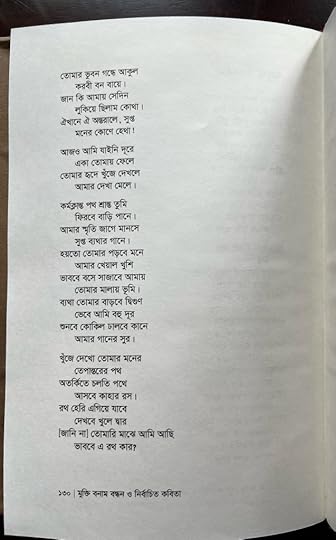 তোমার ভুবন গন্ধে আকুল
করবী বন বায়ে।
জান কি আমায় সেদিন
লুকিয়ে ছিলাম কোথা।
ঐখানে ঐ অন্তরালে, সুপ্ত
মনের কোণে হেথা!
আজও আমি যাইনি দূরে
একা তোমায় ফেলে
তোমার হৃদে খুঁজে দেখলে
আমার দেখা মেলে।
কর্মক্লান্ত পথ শ্রান্ত তুমি
ফিরবে বাড়ি পানে।
আমার স্মৃতি জাগে মানসে
সুপ্ত ব্যথার গানে।
হয়তো তোমার পড়বে মনে
আমার খেয়াল খুশি
ভাববে বসে সাজাবে আমায়
তোমার মালায় ভূমি।
ব্যথা তোমার বাড়বে দ্বিগুণ
ভেবে আমি বহু দূর
শুনবে কোকিল ঢালবে কানে
আমার গানের সুর।
খুঁজে দেখো তোমার মনের
তেপান্তরের পথ
অতর্কিতে চলতি পথে
আসবে কাহার রস।
রথ হেরি এগিয়ে যাবে
দেখবে খুলে দ্বার
[জানি না] তোমারি মাঝে আমি আছি
ভাববে এ রথ কার?
১৩০ | মুক্তি বনাম বন্ধন ও নির্বাচিত কবিতা